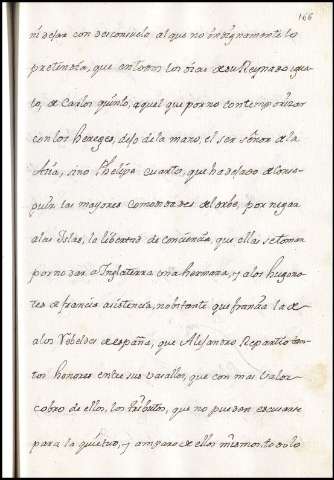 166
ni dejar con desconsuelo al que no indignamente lo
pretendia, que en todos los dias de su Reynado igua
lo, de Carlos quinto, aquel que por no contemporizar
con los hereges, dejo de la mano, el ser señor de la
Asia, sino Phelipe cuarto, que ha dejado de conse
guir las mayores comodidades del orbe, por negar
a las Islas, la libertad de conciencia, que ellas se toman
por no dar a Inglaterra una hermana, y a los hugono
tes de francia asistencia, no obstante que francia la da
a los Rebeldes de españa, que Alejandro Repartio tan
tos honores entre sus vasallos, que con mas valor
cobro de ellos, los tributos, que no pueden escusarse
para la quietud, y amparo de ellos mesmos